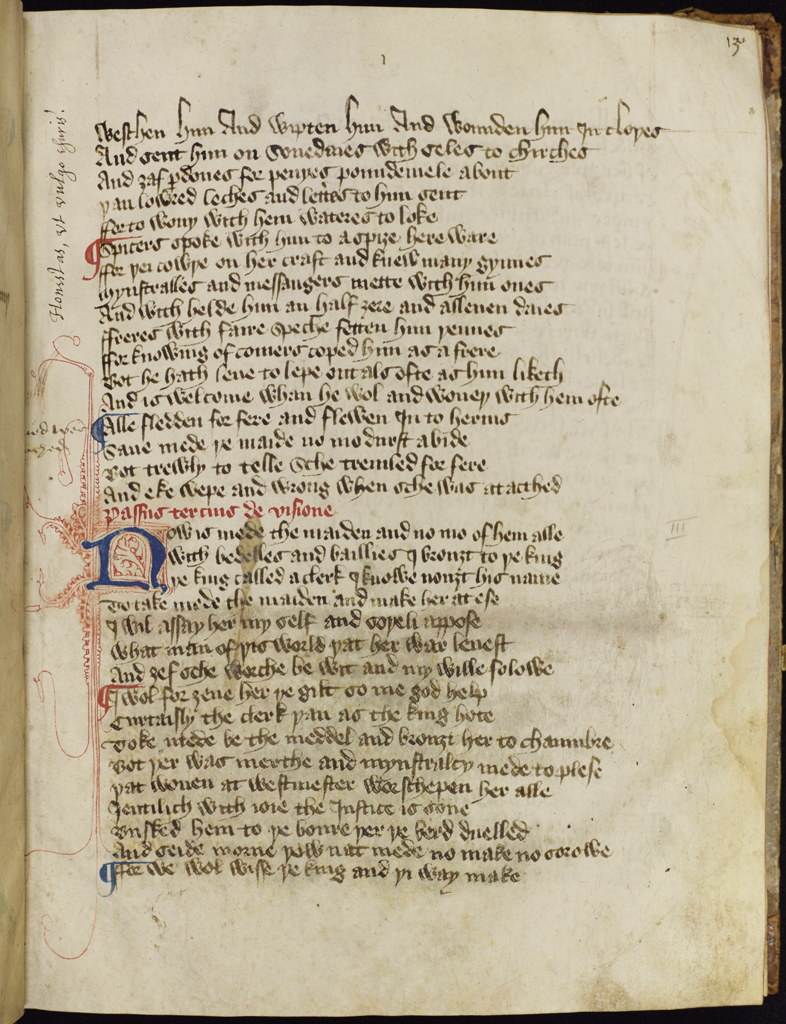 Wesshen him And wipten him And wounden him In cloþes
And sent him on sonedaies with seles to chirches
And ȝaf pdones for penyes poundemele about
þan lowred leches and lettres to him sent
ffor to wony with hem wateres to loke
Spicers spoke with him to aspize here ware
ffor þei cowþe on her craft and knew many gȳmes
Mynstralles and messangers mette with him ones
And with helde him an half ȝere and alleuen daies
ffreres with faire speche fetten him þennes
ffor knowing of comers coped him as a frere
Bot he hath leue to lepe out als ofte as him liketh
And is welcome whan he wol and woneþ with hem ofte
Alle fledden for fere and flewen In to hernis
Saue mede þe maide no mo durst abide
Bot trewly to telle sche tremled for fere
And eke wepe and wrong when sche was atached
Passus tercius de visione
Now is mede the maiden and no mo of hem alle
with bedelles and baillies I brouȝt to þe king
þe king called a clerk I knowe nouȝt his name
To take mede the maiden and make her at ese
I wil assay her my self and soþeli appose
What man of þis world þat her war leuest
And ȝef sche worche be wit and my wille folowe
I wol for ȝeue her þe gilt so me god help
Curtaisly the clerk þan as the king hote
Toke mede be the meddel and brouȝt her to chaumbre
Bot þer was merthe and mynstralcy mede to plese
þat wonen at westmester worschepen her alle
Jentilich with ioie the Justice is sone
Busked hem to þe boure þer þe berd duelled
And seide morne þow nat mede no make no sorowe
ffor we wol wisse þe king and þi way make
III